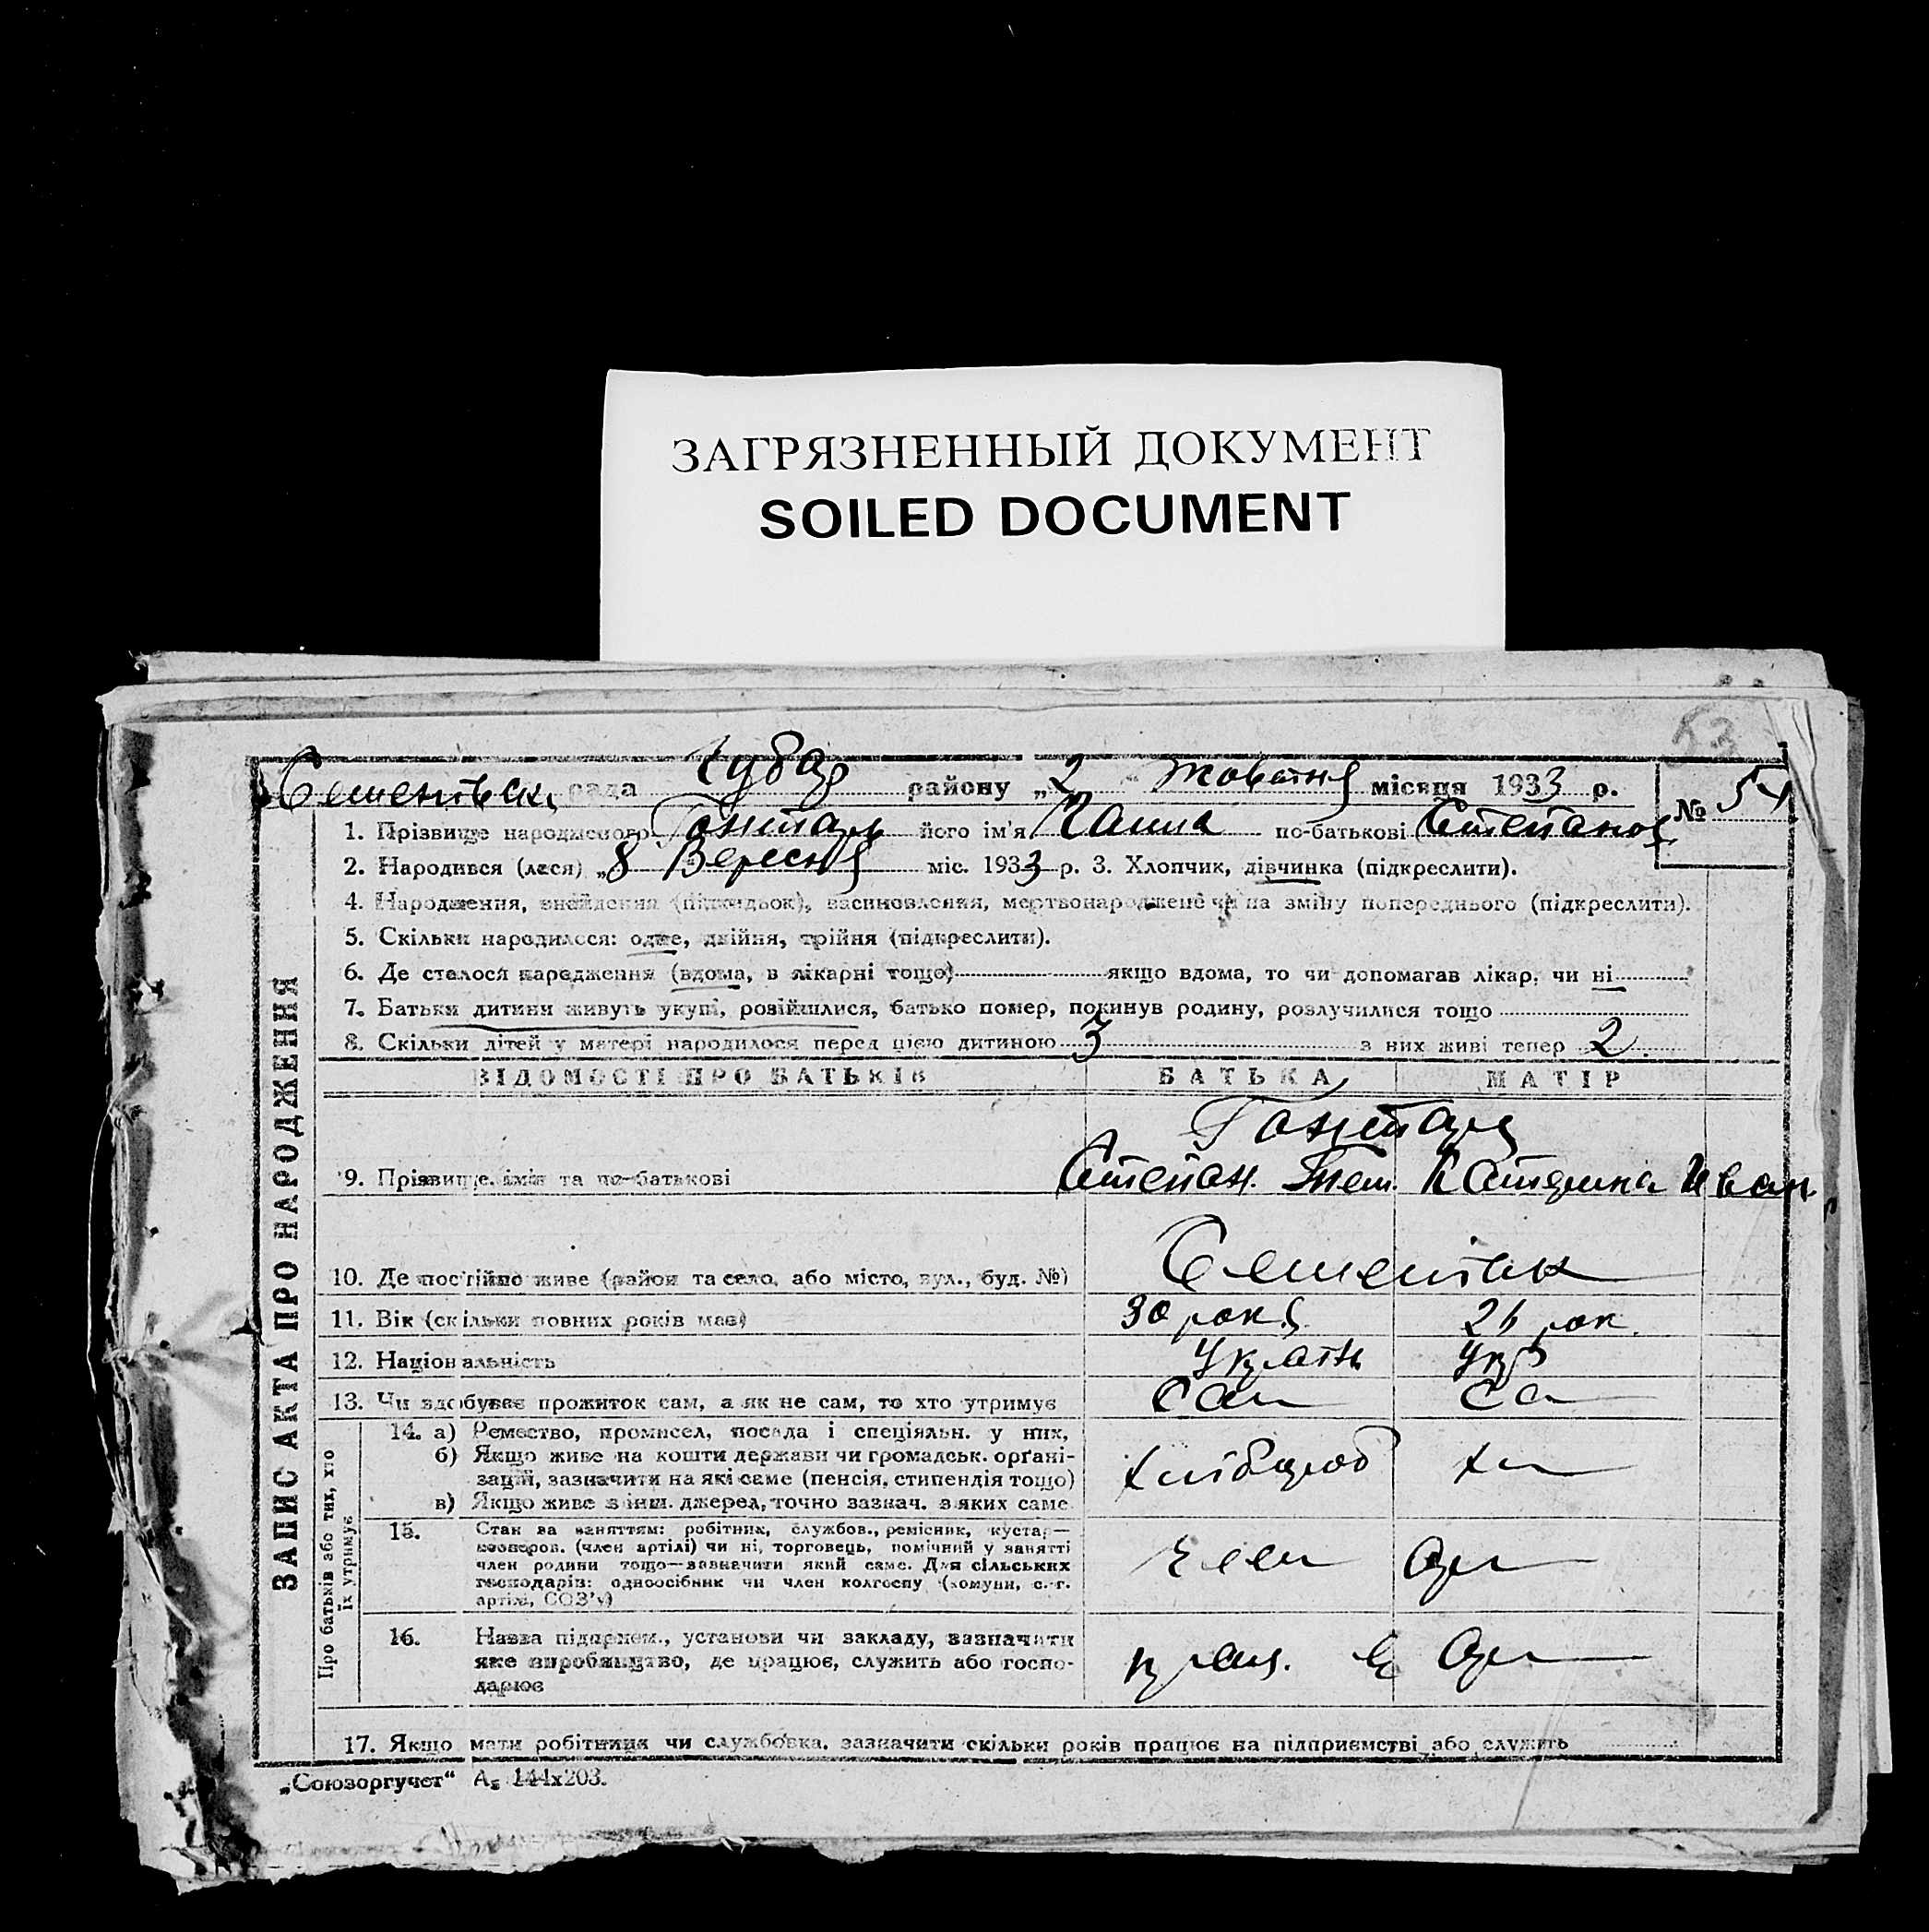 ЗАГРЯЗНЕННЫЙ ДОКУМЕНТ
SOILED DOCUMENT
53
Чубар
рада району „2 Жовтня місяця 1933 р.
№ 54
1. Прізвище народженого його ім'я Ганна по-батькові Степанов
2. Народився (лася) „8 Вересня міс. 1933 р. 3. Хлопчик, дівчинка (підкреслити).
4. Народження, знайдення (підкидьок), всиновлення, мертвонароджене чи на зміну попереднього (підкреслити).
5. Скільки народилося: одне, двійня, трійня (підкреслити).
6. Де сталося народження (вдома, в лікарні тощо) якщо вдома, то чи допомагав лікар, чи ні
7. Батьки дитини живуть укупі, розійшлися, батько помер, покинув родину, розлучилися тощо
8. Скільки дітей у матері народилося перед цією дитиною 3 з них живі тепер 2.
ВІДОМОСТІ ПРО БАТЬКІВ БАТЬКА МАТІР
9. Прізвище, імя та по-батькові Степан. Катерина Иван.
10. Де постійно живе (район та село, або місто, вул., буд. №)
11. Вік (скільки повних років має) 30 рок. 26 рок.
12. Національність Україн Укр
13. Чи здобуває прожиток сам, а як не сам, то хто утримує сам са
14. а) Ремество, промисел, посада і спеціяльн. у них,
б) Якщо живе на кошти держави чи громадськ. орґані-
зацій, зазначити на які саме (пенсія, стипендія тощо)
в) Якщо живе з інш. джерел, точно зазнач. з яких саме
хлібороб хл
15. Стан за заняттям: робітник, службов., ремісник, кустар—
кооперов. (член артілі) чи ні, торговець, помічний у занятті
член родини тощо—зазначити який саме. Для сільських
господарів: одноосібник чи член колгоспу (комуни, с.-г.
артілі, СОЗ'у)
16. Назва підприєм., установи чи закладу, зазначити
яке виробництво, де працює, служить або госпо-
дарює
17. Якщо мати робітниця чи службовка, зазначити скільки років працює на підприємстві або служить
ЗАПИС АКТА ПРО НАРОДЖЕННЯ
Про батьків або тих, хто
їх утримує
„Союзоргучет“ А₅ 144х203.